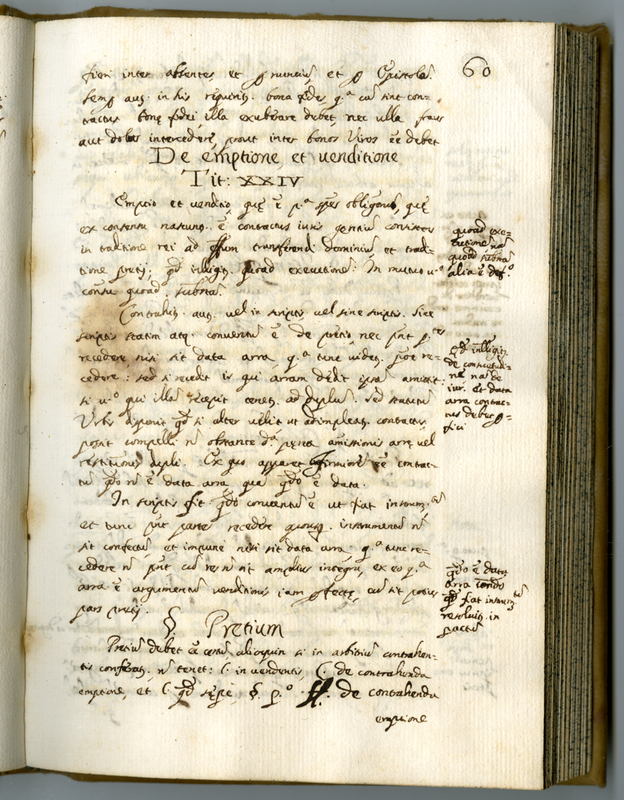 60
fieri inter absentes et p nunciu et p Epistola
semp aut. in his requirit. bona fides q.a cu sint con-
tractus bonę fidei illa exuberare debet, nec ulla fraus
aut dolus intercedere, prout inter bonos Viros ee debet
De emptione et venditione
Tit: XXIV
Emptio et venditio, quę ē p.a spēs obligonis, quę
ex consensu nascunt. ē contractus iuris gentiu consistens
in traditione rei ad effum transferendi dominiu et tradi-
tione pretij; qd intelligit. quoad executione. In mutuo v.o
consu quoad substa.
quoad exe-
cutione na
quoad substa
alia ē
Contrahit. aut. vel in scriptis vel sine scriptis. Sine
scriptis statim atq. conventu ē de pretio nec pnt p.tes
recedere nisi sit data arra q.a tunc videt. posse re-
cedere; sed si recedit is qui arram dedit ipsa amittit;
si v.o qui illa recepit tenet. ad duplum. Sed statutu
Urbis disponit qd si alter velit ut adimpleat. contractus
possit compelli nō obstante d.a pena amissionis arrę vel
restitutionis dupli. Ex quo apparet firmiore ee contrac-
tu qdo nō ē data arra qua qdo ē data.
qd intelligit.
de consuetudi-
ne na de
iure et data
arra contrac-
tus debet p-
fici
In scriptis fit qdo conventu ē ut fiat instrum.tu
et tunc pnt partes recedere quousq. instrumentu nō
sit confectu et impune nisi sit data arra q.a tunc re-
cedere nō pnt cu res nō sit amplius integra, ex eo q.a
arra ē argumentu venditionis iam pfectę, cu sit potius
pars pretij.
qdo ē data
arra
qd fiat instrum.tu
resolvit. in
pactu
§. Pretium
Pretiu debet ee certu alioquin si in arbitriu contrahen-
tis conferat. nō tenet: l. in vendentis C. de contrahenda
emptione, et l. qd sępe §. p.o ff. de contrahenda
emptione